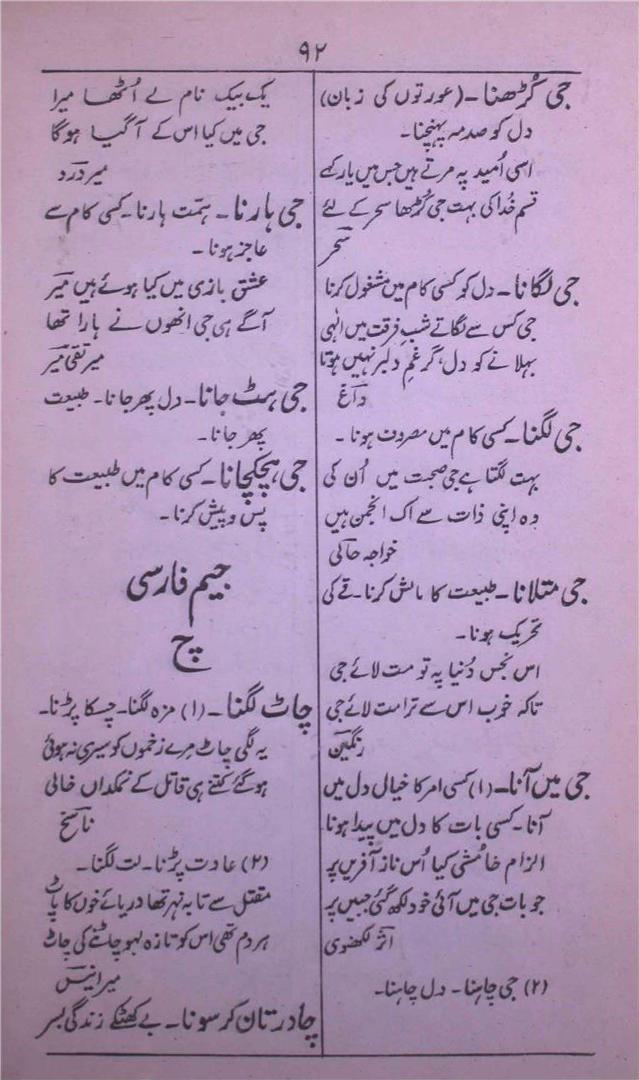 ۹۲
جی کُڑھنا۔ (عورتوں کی زبان)
دل کو صدمہ پہنچنا۔
اسی اُمید پہ مرتے ہیں جس میں یار کہے
قسم خُدا کی بہت جی کُڑھا سحر کے لئے
سحر
جی لگانا۔ دل کو کسی کام میں مشغول کرنا
جی کس سے لگاتے شبِ فرقت میں الٰہی
بہلانے کو دل، گر غمِ دلبر نہیں ہوتا
داغ
جی لگنا۔ کسی کام میں مصروف ہونا۔
بہت لگتا ہے جی صحبت میں اُن کی
وہ اپنی ذات سے اک انجمن ہیں
خواجہ حالی
جی متلانا۔ طبیعت کا مالش کرنا۔ قے کی
تحریک ہونا۔
اس نجس دُنیا پہ تو مت لائے جی
تاکہ خوب اس سے ترا مت لائے جی
رنگین
جی میں آنا۔ (۱) کسی امر کا خیال دل میں
آنا۔ کسی بات کا دل میں پیدا ہونا
الزام خامشی کیا اُس ناز آفریں پر
جو بات جی میں آئی خود لکھ گئی جبیں پر
اثر لکھنوی
(۲) جی چاہنا۔ دل چاہنا۔
یک بیک نام لے اُٹھا میرا
جی میں کیا اس کے آ گیا ہو گا
میر درد
جی ہارنا۔ ہمّت ہارنا۔ کسی کام سے
عاجز ہونا۔
عشق بازی میں کیا ہوئے ہیں میر
آگے ہی جی انھوں نے ہارا تھا
میر تقی میر
جی ہٹ جانا۔ دل پھر جانا۔ طبیعت
پھر جانا۔
جی ہچکچانا۔ کسی کام میں طبیعت کا
پس و پیش کرنا۔
جیم فارسی
چ
چاٹ لگنا۔ (۱) مزہ لگنا۔ چسکا پڑنا۔
یہ لگی چاٹ مرے زخموں کو سیری نہ ہوئی
ہو گئے کتنے ہی قاتل کے نمکداں خالی
ناسخ
(۲) عادت پڑنا۔ لت لگنا۔
مقتل سے تا بہ نہر تھا دریائے خوں کا پاٹ
ہر دم تھی اس کو تازہ لہو چاٹنے کی چاٹ
میر انیس
چادر تان کر سونا۔ بے کھٹکے زندگی بسر